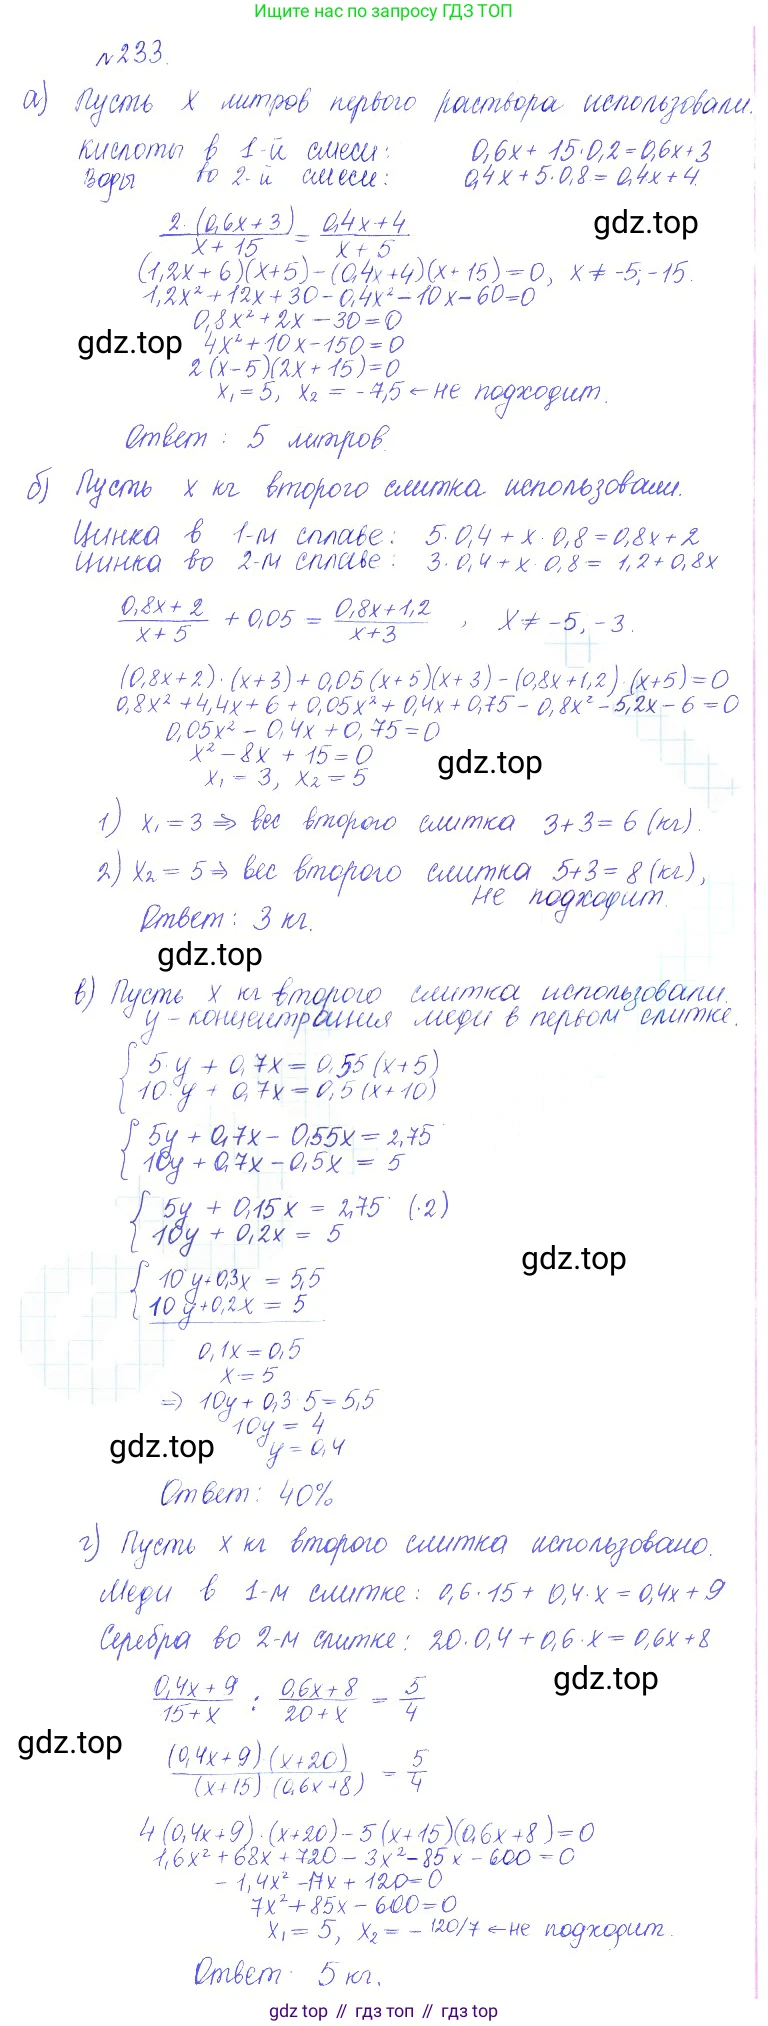 Ищите нас по запросу ГДЗ ТОП
№233.
а) Пусть x литров первого раствора использовали.
Кислоты в 1-й смеси: 0,6x + 15·0,2 = 0,6x+3
Воды во 2-й смеси: 0,4x + 5·0,8 = 0,4x+4.
2·(0,6x+3)/(x+15) = (0,4x+4)/(x+5)
gdz.top
(1,2x+6)(x+5) - (0,4x+4)(x+15) = 0, x ≠ -5; -15.
1,2x² + 12x + 30 - 0,4x² - 10x - 60 = 0
0,8x² + 2x - 30 = 0
gdz.top
4x² + 10x - 150 = 0
2(x-5)(2x+15) = 0
x₁ = 5, x₂ = -7,5 ← не подходит.
Ответ: 5 литров.
б) Пусть x кг второго слитка использовали.
Цинка в 1-м сплаве: 5·0,4 + x·0,8 = 0,8x+2
Цинка во 2-м сплаве: 3·0,4 + x·0,8 = 1,2+0,8x
(0,8x+2)/(x+5) + 0,05 = (0,8x+1,2)/(x+3), x ≠ -5, -3.
(0,8x+2)·(x+3) + 0,05(x+5)(x+3) - (0,8x+1,2)·(x+5) = 0
0,8x² + 4,4x + 6 + 0,05x² + 0,4x + 0,75 - 0,8x² - 5,2x - 6 = 0
0,05x² - 0,4x + 0,75 = 0
x² - 8x + 15 = 0
gdz.top
x₁ = 3, x₂ = 5
1) x₁ = 3 ⇒ вес второго слитка 3+3 = 6 (кг).
2) x₂ = 5 ⇒ вес второго слитка 5+3 = 8 (кг),
не подходит.
Ответ: 3 кг.
gdz.top
в) Пусть x кг второго слитка использовали.
y - концентрация меди в первом слитке.
{ 5·y + 0,7x = 0,55(x+5)
10·y + 0,7x = 0,5(x+10)
{ 5y + 0,7x - 0,55x = 2,75
10y + 0,7x - 0,5x = 5
{ 5y + 0,15x = 2,75 (·2)
10y + 0,2x = 5
gdz.top
{ 10y+0,3x = 5,5
10y+0,2x = 5
0,1x = 0,5
x = 5
⇒ 10y + 0,3·5 = 5,5
10y = 4
gdz.top
y = 0,4
Ответ: 40%
г) Пусть x кг второго слитка использовано.
Меди в 1-м слитке: 0,6·15 + 0,4·x = 0,4x+9
Серебра во 2-м слитке: 20·0,4 + 0,6·x = 0,6x+8
gdz.top
(0,4x+9)/(15+x) : (0,6x+8)/(20+x) = 5/4
gdz.top
(0,4x+9)(x+20)/(x+15)·(0,6x+8) = 5/4
4(0,4x+9)·(x+20) - 5(x+15)(0,6x+8) = 0
1,6x² + 68x + 720 - 3x² - 85x - 600 = 0
-1,4x² - 17x + 120 = 0
7x² + 85x - 600 = 0
x₁ = 5, x₂ = -120/7 ← не подходит.
Ответ: 5 кг.
gdz top // гдз топ // gdz top